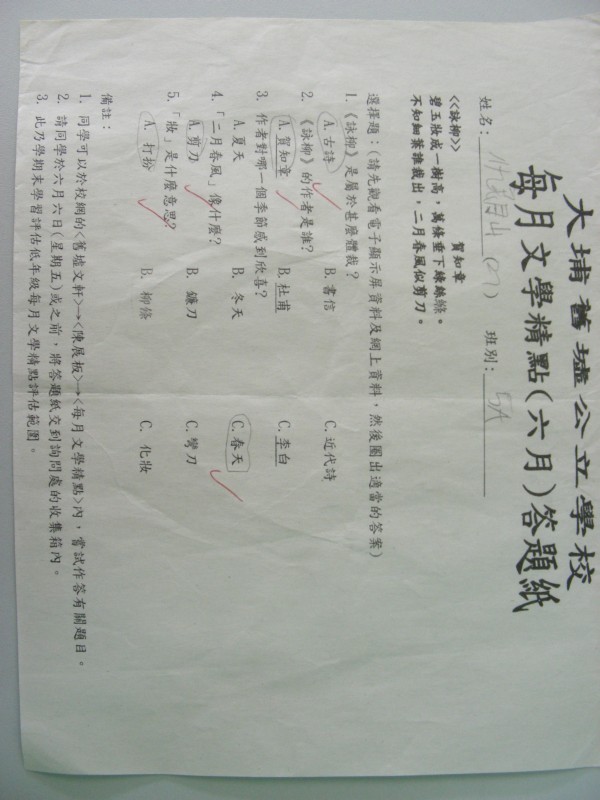 大埔舊墟公立學校
每月文學精點(六月)答題紙
姓名: (27) 班別: 5A
<<詠柳>> 賀知章
碧玉妝成一樹高，萬條垂下綠絲絛。
不知細葉誰裁出，二月春風似剪刀。
選擇題：(請先觀看電子顯示屏資料及網上資料，然後圈出適當的答案)
1. 《詠柳》是屬於甚麼體裁？
A. 古詩 B. 書信 C. 近代詩
2. 《詠柳》的作者是誰？
A. 賀知章 B. 杜甫 C. 李白
3. 作者對哪一個季節感到欣喜？
A. 夏天 B. 冬天 C. 春天
4. 「二月春風」像什麼？
A. 剪刀 B. 鐮刀 C. 彎刀
5. 「妝」是什麼意思？
A. 打扮 B. 柳條 C. 化妝
備註：
1. 同學可以於校網的<舊墟文軒>→<陳展板>→<每月文學精點>內，嘗試作答有關題目。
2. 請同學於六月六日(星期五)或之前，將答題紙交到詢問處的收集箱內。
3. 此乃學期末學習評估低年級每月文學精點評估範圍。